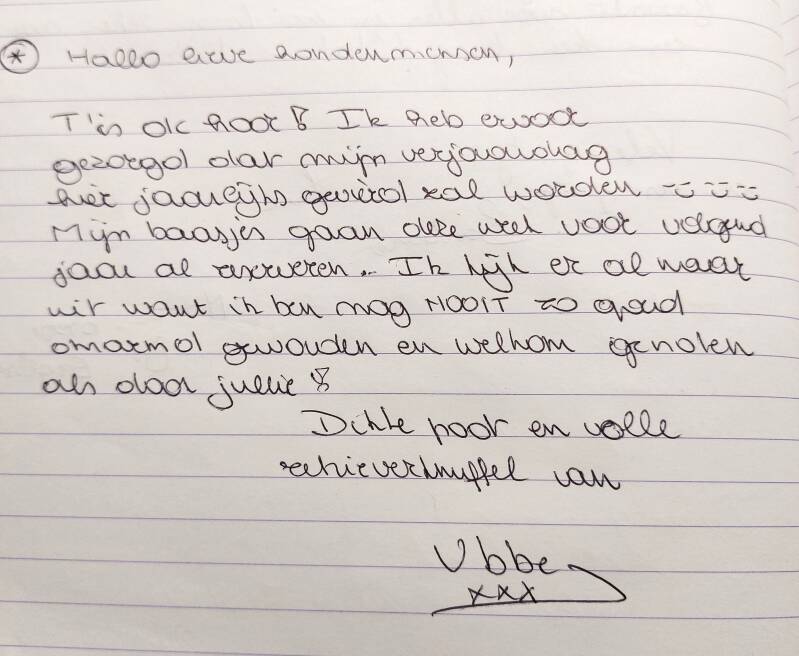 * Hallo lieve hondenmensen,
T'is ok hoor! Ik heb ervoor
gezorgd dat mijn verjaardag
hier jaarlijks gevierd zal worden
Mijn baasjes gaan deze week voor volgend
jaar al reserveren... Ik kijk er al naar
uit want ik ben nog NOOIT zo goed
omarmd geworden en welkom geheten
als door jullie!
Dikke poot en volle
retrieverknuffel van
Ubbe
xxx